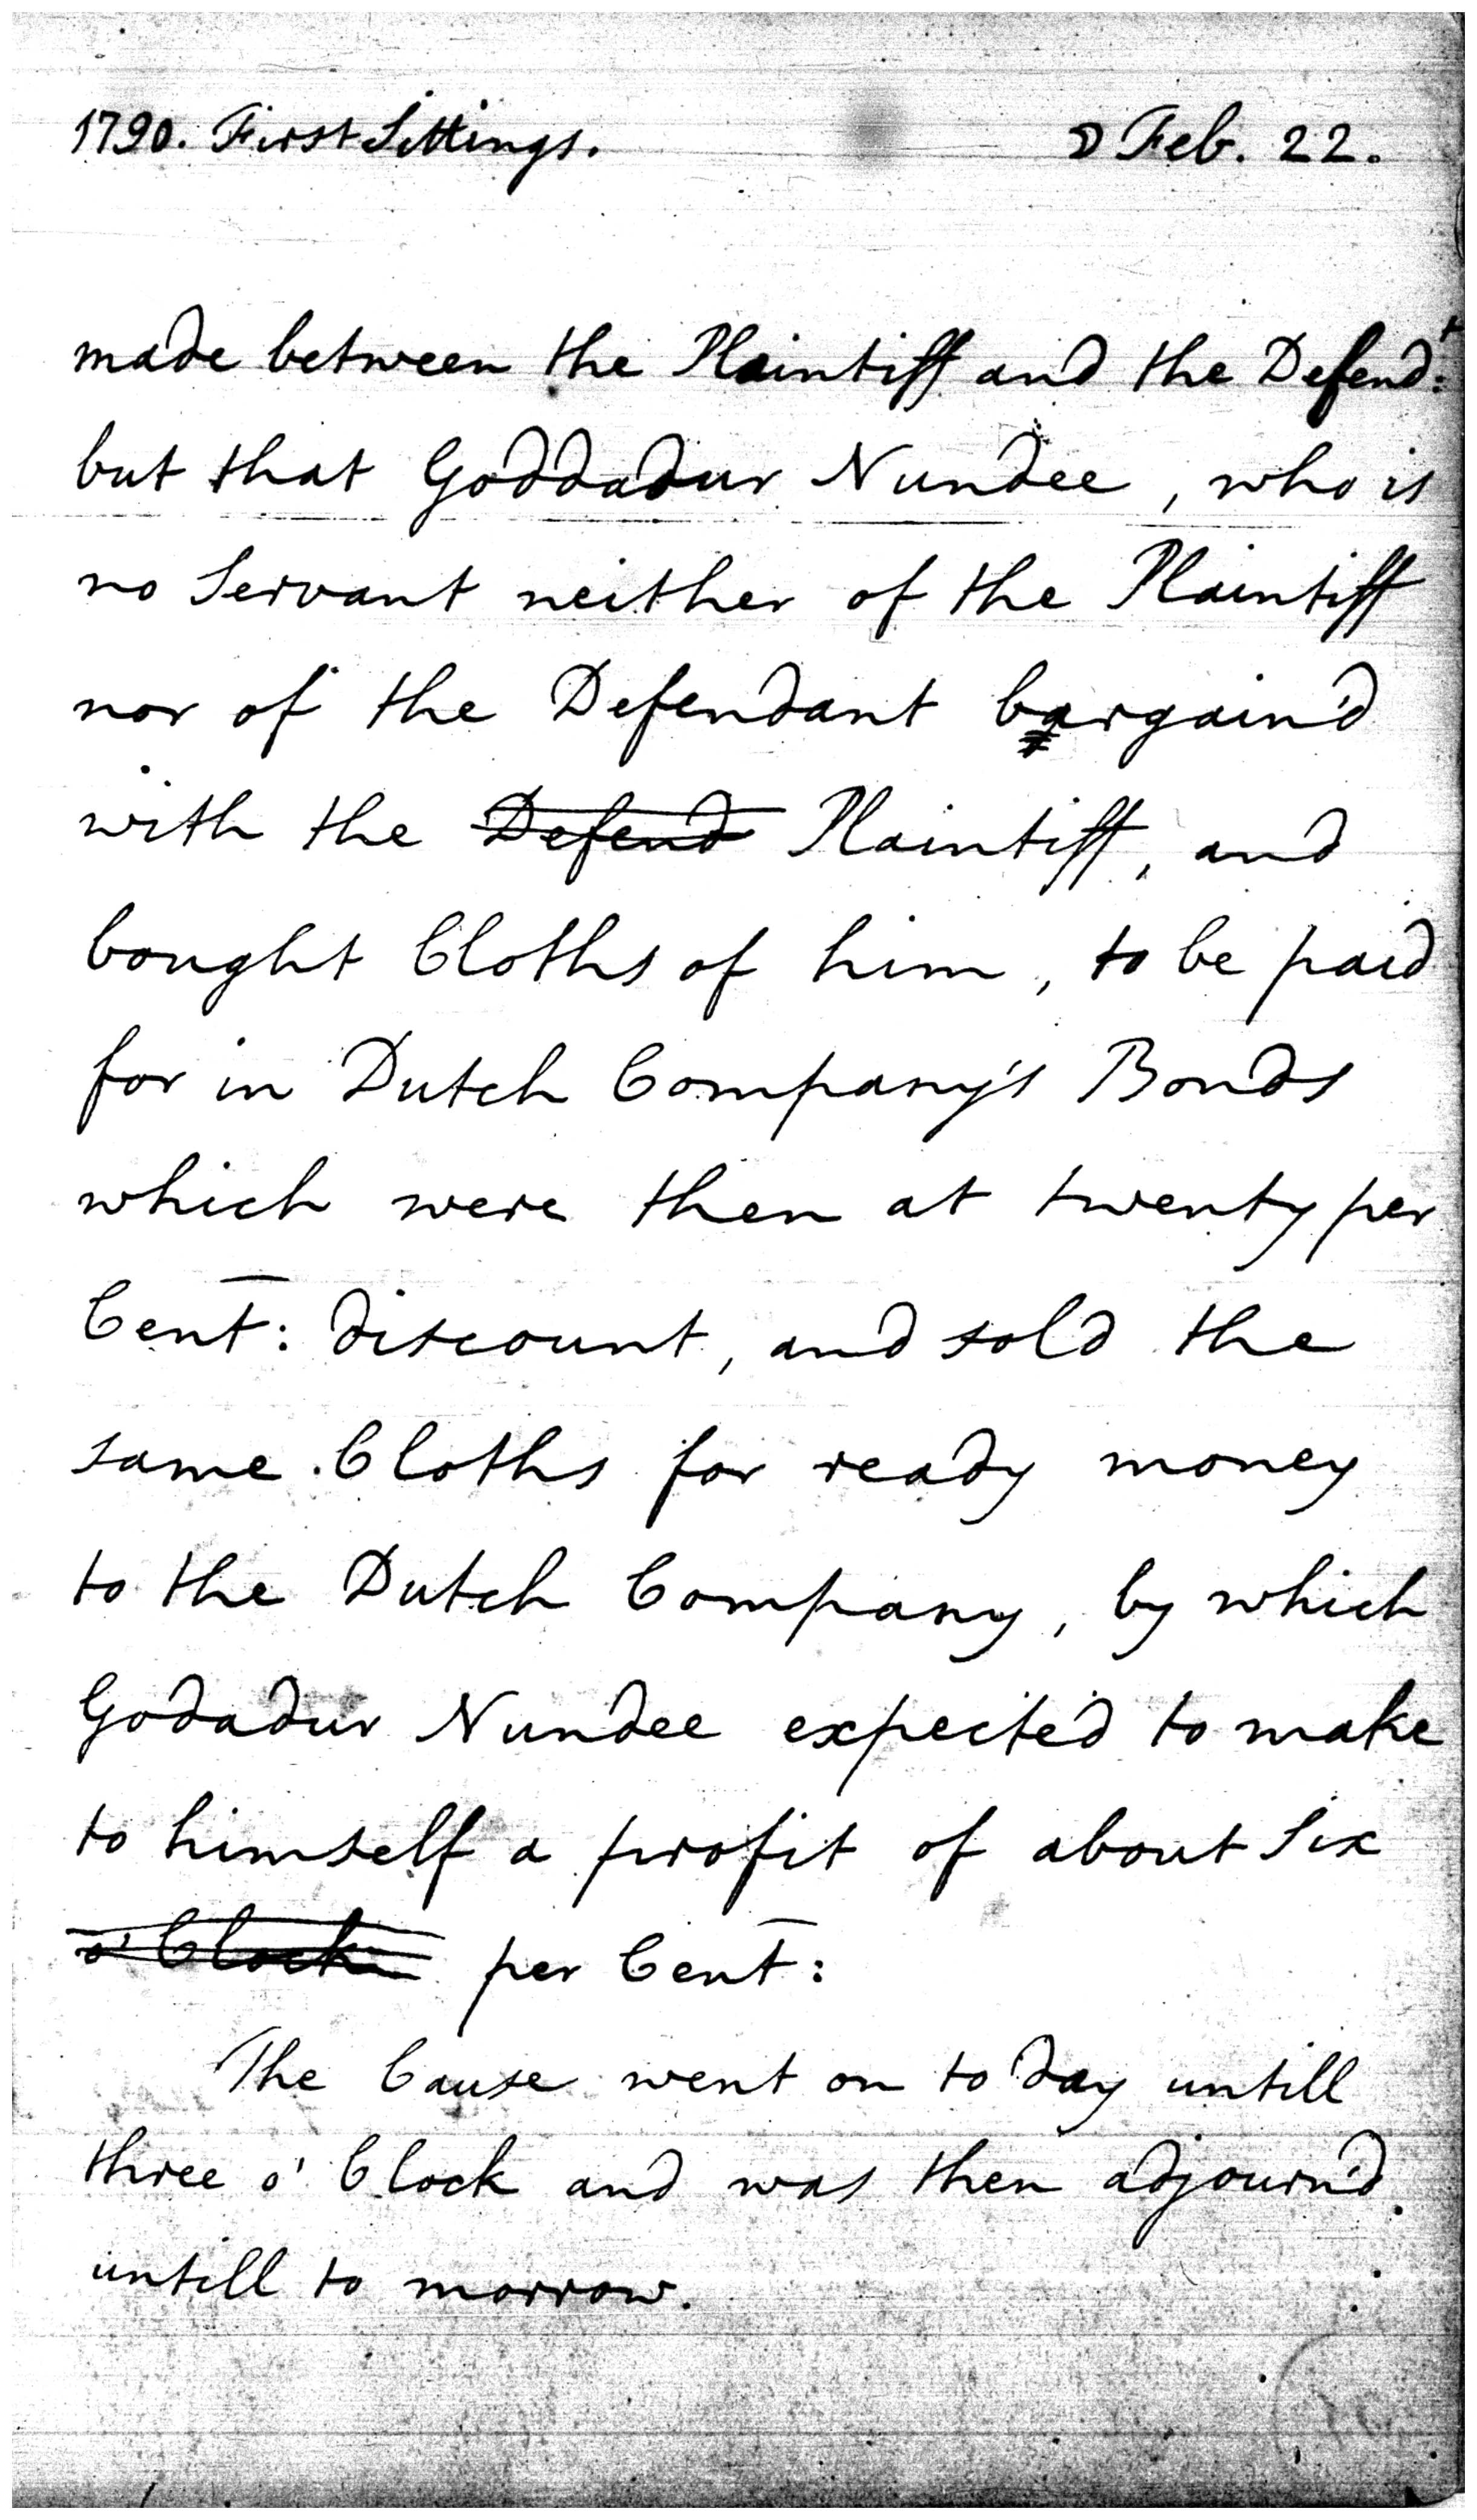 1790. First Sittings. ☽ Feb. 22.
made between the Plaintiff and the Defend:t
but that Goddadur Nundee, who is
no Servant neither of the Plaintiff
nor of the Defendant bargain'd
with the Defend Plaintiff, and
bought Cloths of him, to be paid
for in Dutch Company's Bonds
which were then at twenty per
Cent: discount, and sold the
same Cloths for ready money
to the Dutch Company, by which
Godadur Nundee expected to make
to himself a profit of about Six
o' Clock per Cent:
The Cause went on to day untill
three o' Clock and was then adjourn'd
untill to morrow.